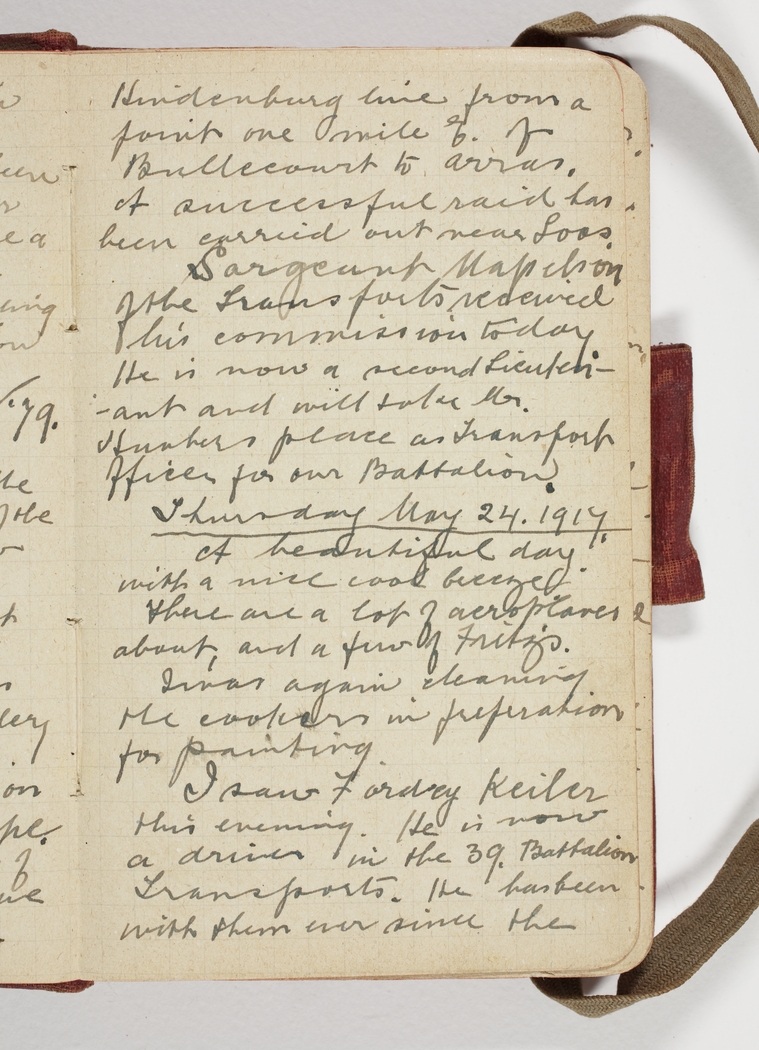 Hindenburg line from a
point one mile E. of
Bullecourt to Arras.
A successful raid has
been carried out near Loos.
Sargeant Mapelson
of the Transports received
his commission today
He is now a second Lieuten-
-ant and will take Mr.
Hunters place as Transport
Officer for our Battalion.
Thursday May 24. 1917
A beautiful day
with a nice cool breeze.
There are a lot of aeroplanes
about, and a few of Fritz's.
I was again cleaning
the cookers in preperation
for painting
I saw Fordey Keiler
this evening. He is now
a driver in the 39. Battalion
Transports. He has been
with them ever since the